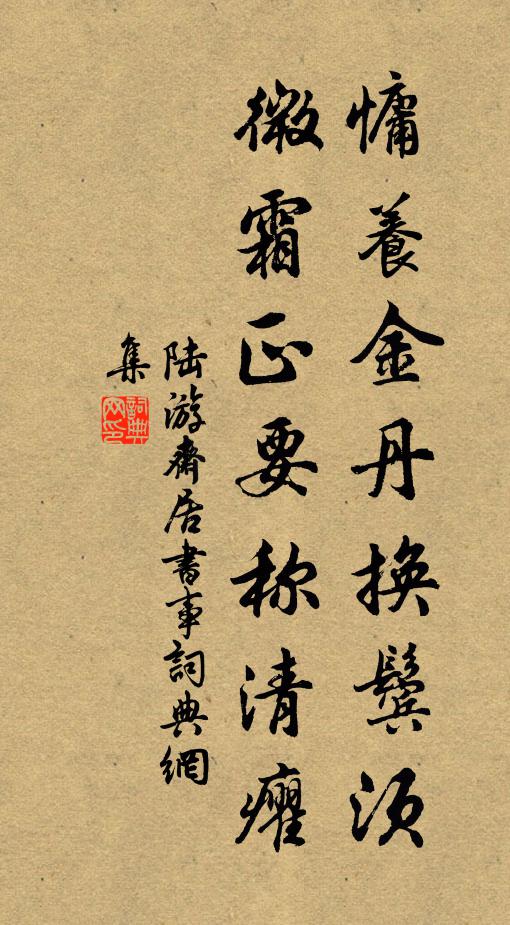 慵養金丹換鬢須
微霜正要称清癯
陆游齋居書事詞典網
集
詞典网印